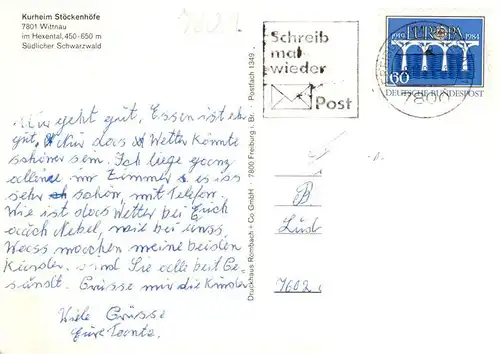 Kurheim Stöckenhöfe
7801 Wittnau
im Hexental, 450-650 m
Südlicher Schwarzwald
7602
Schreib
mal
wieder
Post
1959 EUROPA 1984
60
DEUTSCHE BUNDESPOST
7800
Mir geht gut, Essen ist
gut, Nur das Wetter könnte
schöner sein. Ich liege ganz
alleine im Zimmer es iss
sehr schön, mit Telefon.
Wie ist das Wetter bei Euch
auch Nebel, wie bei uns.
Wass machen meine beiden
Kinder. sind Sie alle bei Ge
sündt. Grüsse mir die Kinder
Viele Grüsse
Eure
Druckhaus Rombach + Co GmbH · 7800 Freiburg i. Br. · Postfach 1349
B
Lüd
7602